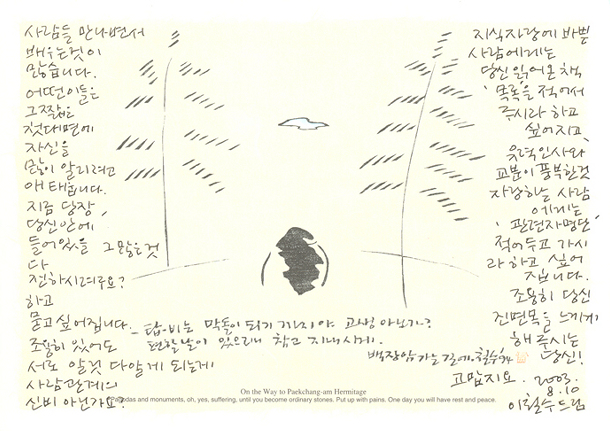 사람들 만나면서
배우는것이
많습니다.
어떤이들은
그짧은
첫대면에
자신을
많이 알리려고
애태웁니다.
지금 당장,
당신안에
들어있을 그많은것
다
전하시려구요?
하고
묻고싶어집니다.
조용히 있어도
서로 알것 다알게 되는게
사람관계의
신비 아닌가요?
지식자랑에 바쁜
사람에게는
당신 읽어온 책
'목록'을 적어서
주시라 하고
싶어지고,
유력인사와
교분이 풍부한것
자랑하는 사람
에게는
'관련자명단'
적어두고 가시
라 하고 싶어
집니다.
조용히 당신
진면목을 느끼게
해주시는
당신!
고맙지요. 2003.
8.10
이철수드림
탑·비는 막돌이 되기 까지야 고생 아닌가?
편할날이 있으리니 참고 지내시게.
백장암가는길에. 철수 94
On the Way to Paekchang-am Hermitage
Pagodas and monuments, oh, yes, suffering, until you become ordinary stones. Put up with pains. One day you will have rest and peace.